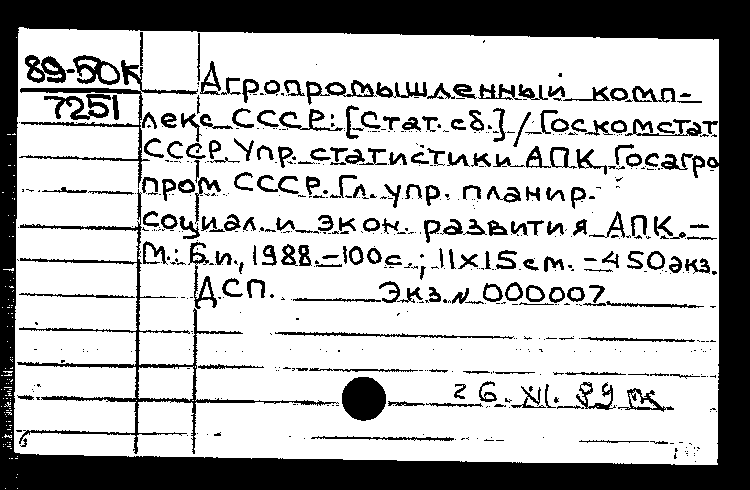 89-50К
7251
Агропромышленный комп-
лекс СССР: [Стат. сб.] / Госкомстат
СССР. Упр. статистики АПК, Госагро
пром СССР. Гл. упр. планир.
социал. и экон. развития АПК. –
М.: Б.и., 1988. – 100 с.; 11х15 см. – 450 экз.
ДСП. Экз. N 000007
26. XI. 89
6